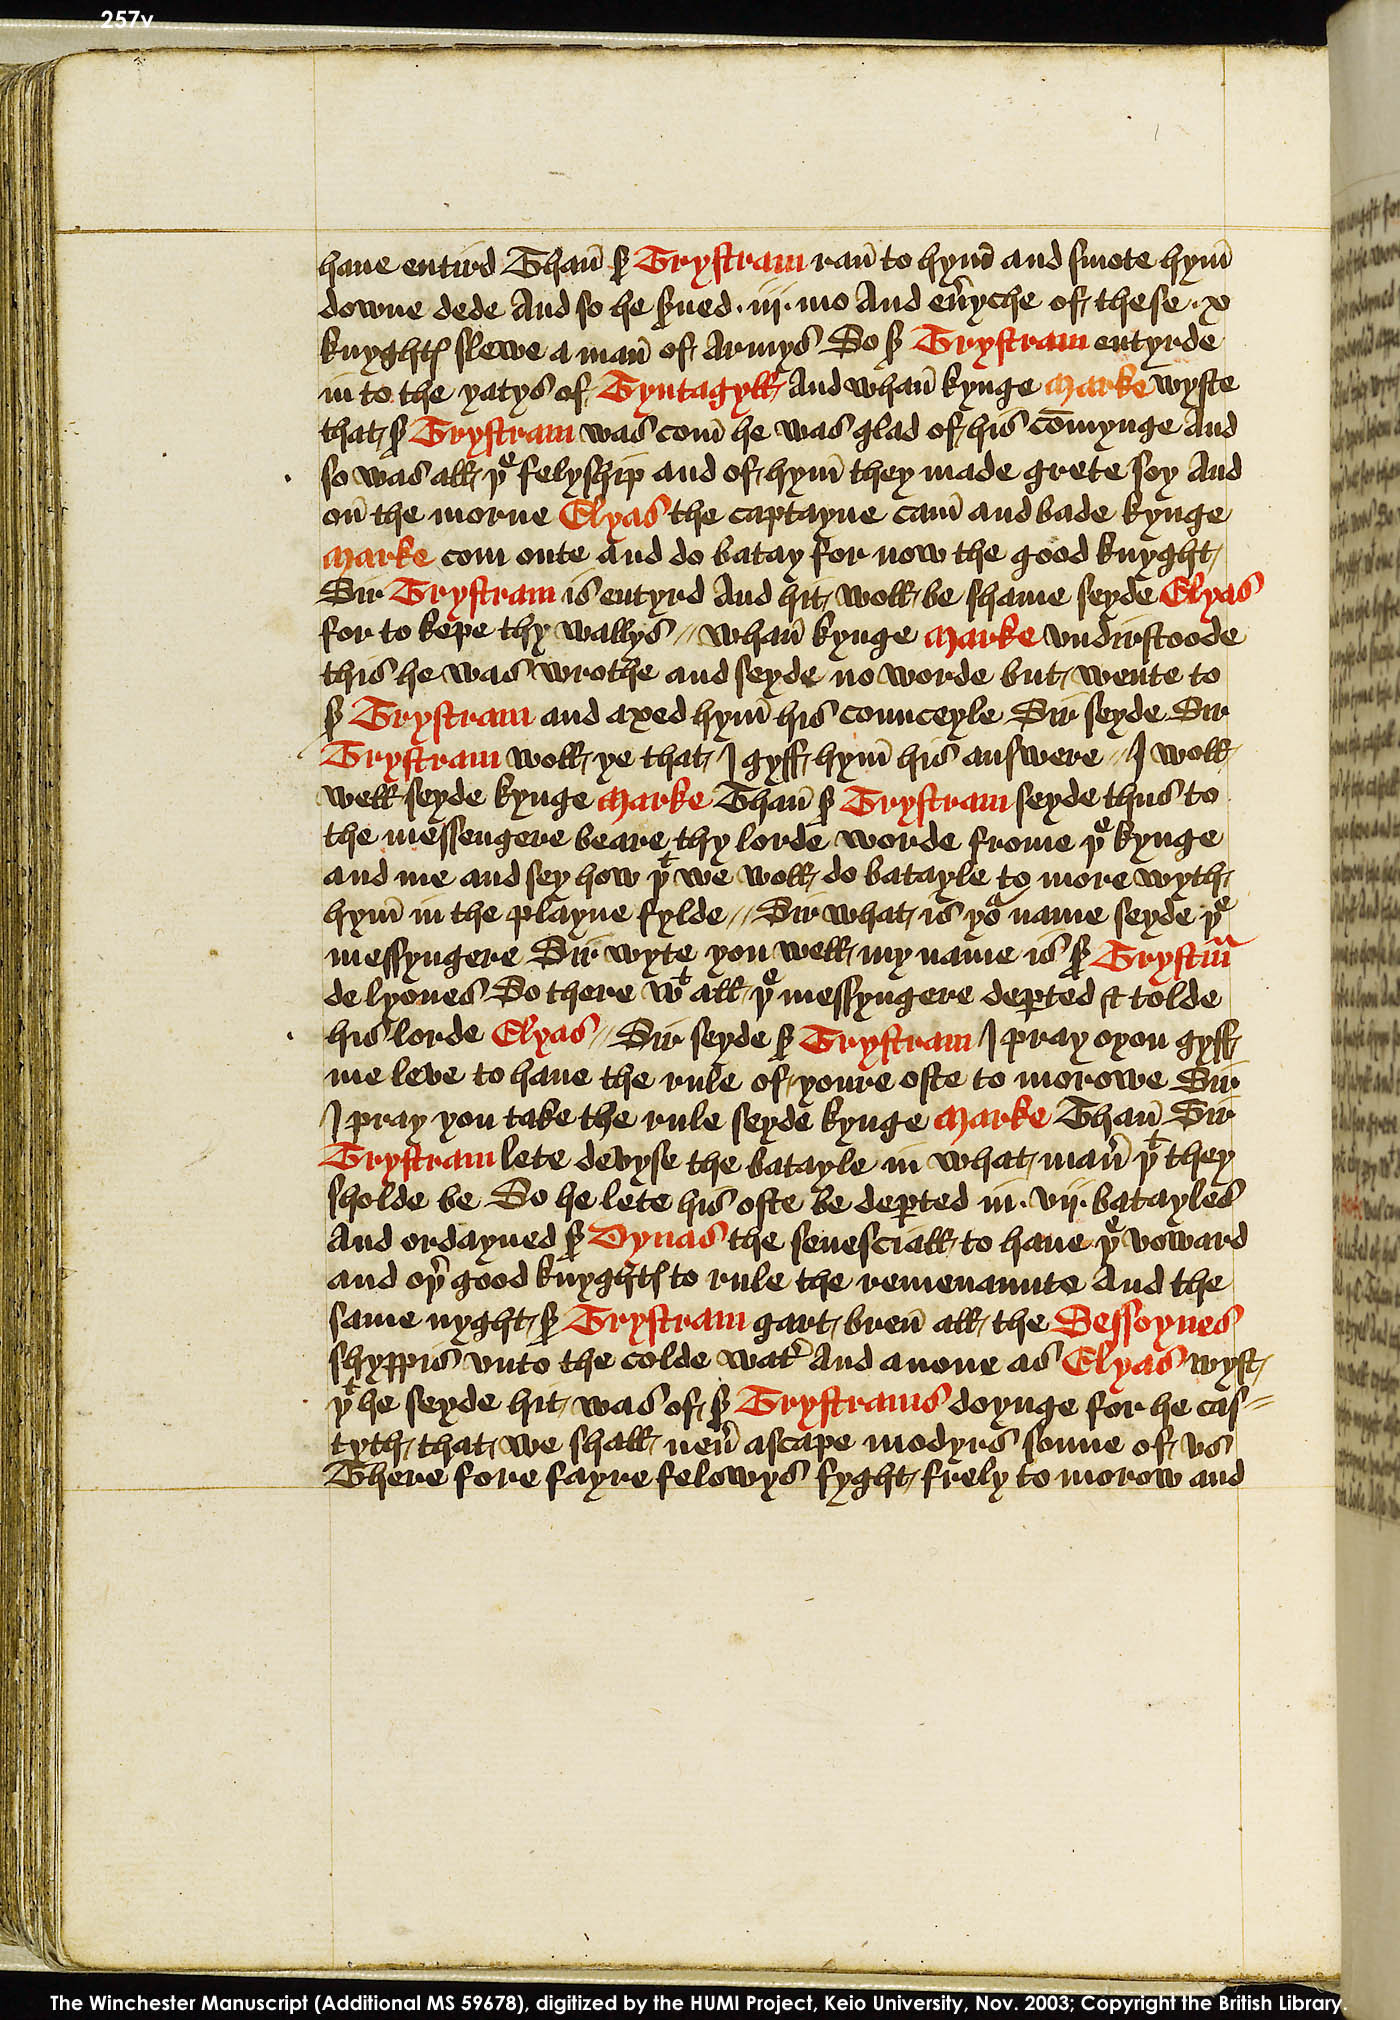 257v
haue entird Than̄ ẜ Trystram ran̄ to hym̄ and smote hym̄
downe dede And so he ẜued · iij · mo And eu̾yche of these · x
knyghtꝭ slewe a man̄ of Armys So ẜ Trystram entyrde
in to the yatys of Tyntagyll And whan̄ kynge Marke wyste
that ẜ Trystram was com̄ he was glad of his com̄ynge And
so was all þᵉ felyship and of hym̄ they made grete Ioy And
on̄ the morne Elyas the captayne cam̄ and bade kynge
Marke com oute and do batay for now the good knyght
Sir Trystram is entyrd And hit woll be shame seyde Elyas
for to kepe thy wallys // whan̄ kynge Marke vndirstoode
this he was wrothe and seyde no worde but wente to
ẜ Trystram and axed hym̄ his counceyle Sir seyde Sir
Trystram woll ye that I gyff hym̄ his answere // I woll
well seyde kynge Marke Than̄ ẜ Trystram seyde thus to
the messengere beare thy lorde worde frome þᵉ kynge
and me and sey how þᵗ we woll do batayle to more wyth
hym̄ in the playne fylde // Sir what is yoʳ name seyde þᵉ
messyngere Sir wyte you well my name is ẜ Trystm̄
de lyones So there wᵗ all þᵉ messyngere deꝑted & tolde
his lorde Elyas // Sir seyde ẜ Trystram I pray oyou gyff
me leve to haue the rule of youre oste to morowe Sir
I pray you take the rule seyde kynge Marke Than̄ Sir
Trystram lete devyse the batayle in what man̾ þᵗ they
sholde be So he lete his oste be deꝑted in · vij · batayles
And ordayned ẜ Dynas the senesciall to haue þᵉ voward
and oþ̾ good knyghtꝭ to rule the remenaunte And the
same nyght ẜ Trystram gart bren̄ all the Sessoynes
shyppis vnto the colde wat̾ And anone as Elyas wyst
þᵗ he seyde hit was of ẜ Trystrams doynge for he cas=
tyth that we shall neu̾ ascape modyrs sonne of vs
There fore fayre felowys fyght frely to morow and
The Winchester Manuscript (Additional MS 59678), digitized by the HUMI Project, Keio University, Nov. 2003; Copyright the British Library.